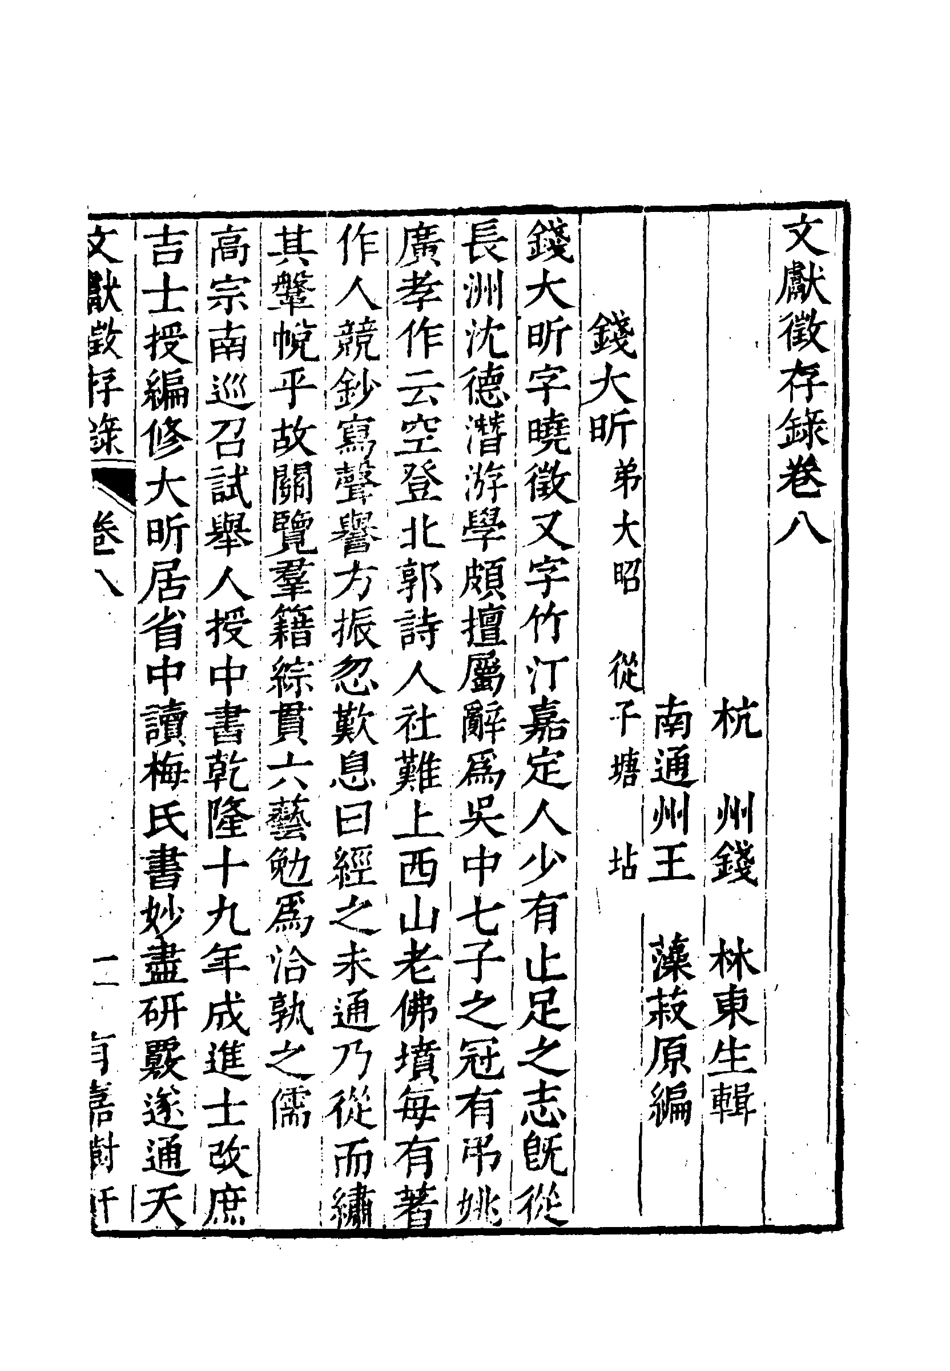 文獻徵存錄卷八
杭　州錢　林東生輯
南通州王　藻菽原編
錢大昕弟大昭　從子塘　坫
錢大昕字曉徵又字竹汀嘉定人少有止足之志旣從
長洲沈德潛游學頗擅屬辭爲吳中七子之冠有弔姚
廣孝作云空登北郭詩人社難上西山老佛墳每有著
作人競鈔寫聲譽方振忽歎息曰經之未通乃從而繡
其鞶帨乎故關覽羣籍綜貫六藝勉爲洽孰之儒
高宗南巡召試舉人授中書乾隆十九年成進士改庶
吉士授編修大昕居省中讀梅氏書妙盡研覈遂通天
文獻徵存錄　卷八　一　有嘉樹軒